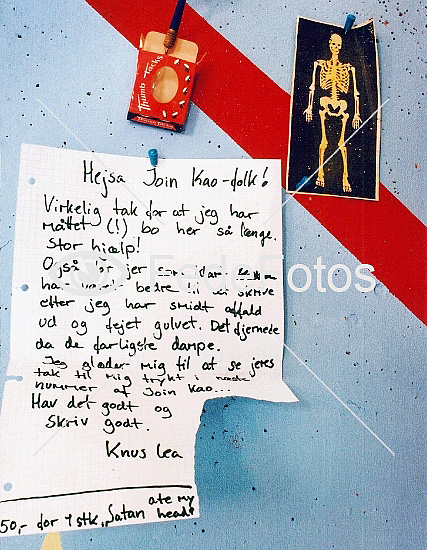 Thumb Tacks
Hejsa Join Kao-folk!
Virkelig tak for at jeg har
måttet (!) bo her så længe.
Stor hjælp!
Også for jer
ha bedre til at skrive
efter jeg har smidt affald
ud og fejet gulvet. Det fjernede
da de farligste dampe.
Jeg glæder mig til at se jeres
tak til mig trykt i næste
nummer af Join Kao...
Hav det godt og
Skriv godt.
Knus Lea
ate my
50,- for 4 stk. "Satan head"
Fotos